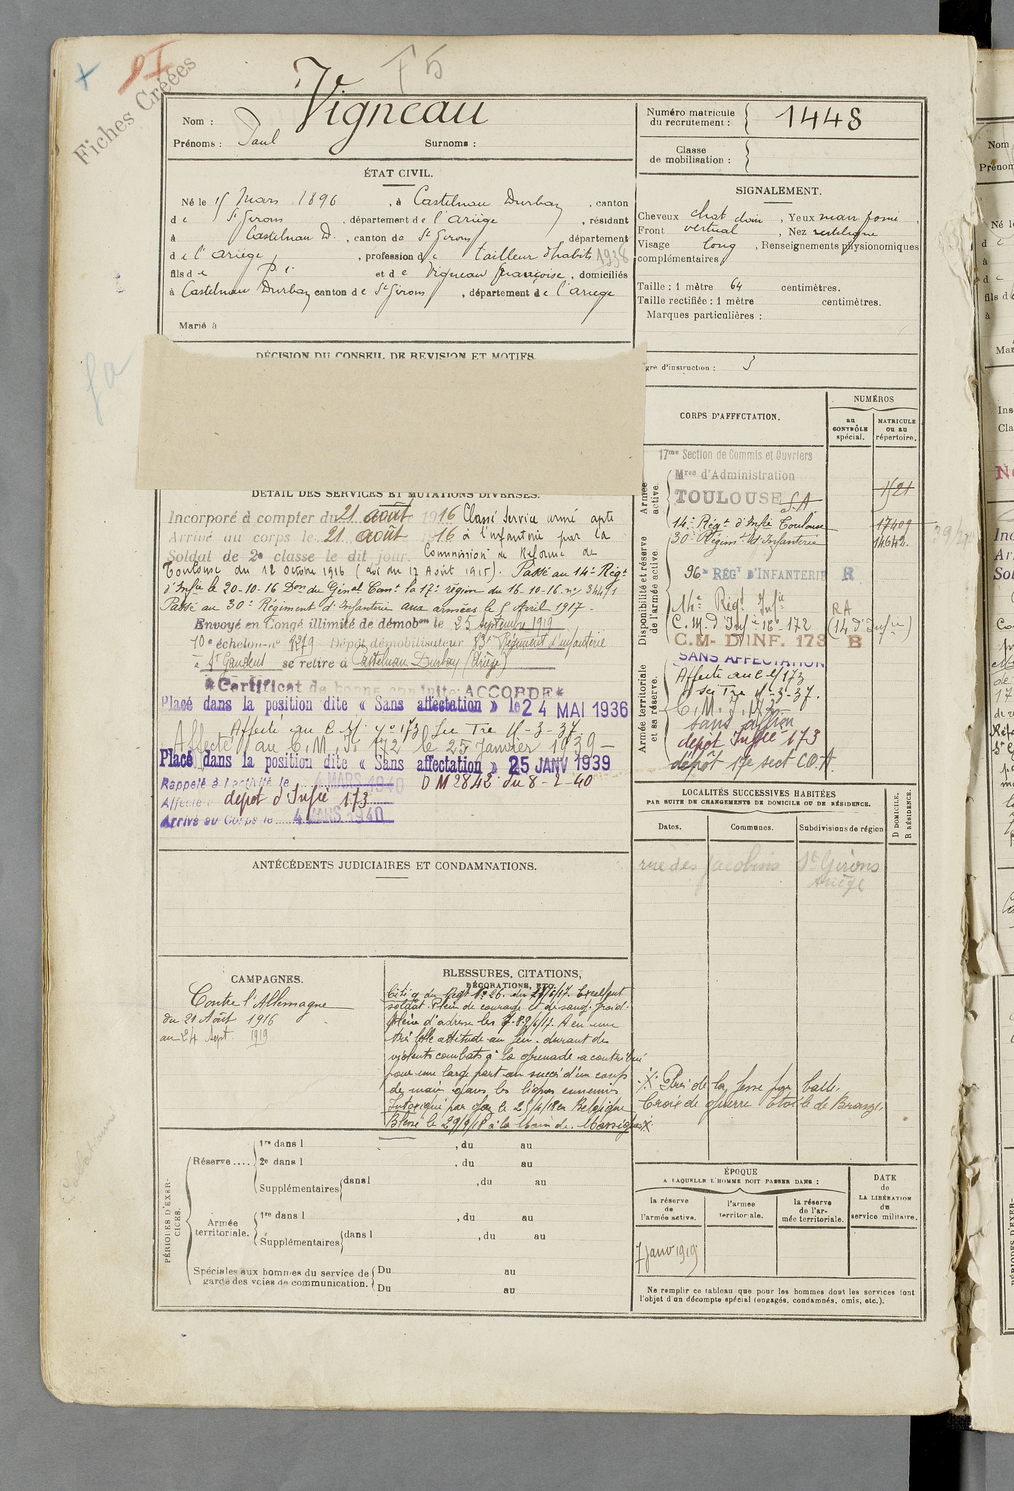 F 5
Fiches Créées
Nom : Vigneau
Prénoms : Paul Surnoms :
Numéro matricule du recrutement : 1448
Classe de mobilisation :
ÉTAT CIVIL.
Né le 15 Mars 1896, à Castelnau Durban, canton
de St Girons, département de l'Ariège, résidant
à Castelnau D., canton de St Girons, département
de l'Ariège, profession de tailleur d'habits 1938
fils de et de Vigneau Françoise, domiciliés
à Castelnau Durban canton de St Girons, département de l'Ariège
Marié à
SIGNALEMENT.
Cheveux chat clair, Yeux marr foncé
Front vertical, Nez rectiligne
Visage long, Renseignements physionomiques
complémentaires
Taille : 1 mètre 64 centimètres.
Taille rectifiée : 1 mètre centimètres.
Marques particulières :
DÉCISION DU CONSEIL DE REVISION ET MOTIFS.
gré d'instruction : 3
CORPS D'AFFECTATION.
NUMÉROS
au CONTRÔLE spécial.
MATRICULE ou au répertoire.
Armée active.
17me Section de Commis et Ouvriers
Mres d'Administration
TOULOUSE S.A
14e Régt d'Infie Toulouse 17409
30e Régiment d'Infanterie 14642
Disponibilité et réserve de l'armée active.
96e RÉGT D'INFANTERIE R
14e Régt Infie RA
C. M. d'Infie 16e 172 (14 d'Infie)
C.M. D'INF. 173 B
Armée territoriale et sa réserve.
SANS AFFECTATION
Affecté au C M 173
sei Tre 11-3-37.
C. M. I. 173
sans affon
dépôt Infie 173
dépôt 17e sect C.O.A.
DÉTAIL DES SERVICES ET MUTATIONS DIVERSES.
Incorporé à compter du 21 août 1916 Classé Service armé apte
Arrivé au corps le 21 août 1916 à l'infanterie par la
Soldat de 2e classe le dit jour. Commission de Réforme de
Toulouse du 12 Octobre 1916 (Loi du 17 Août 1915). Passé au 14e Régt
d'Infie le 20-10-16 Don du Génal Comt la 17e région du 16-10-16 no 34471
Passé au 30e Régiment d'Infanterie aux armées le 5 Avril 1917.
Envoyé en Congé illimité de démobon le 25 septembre 1919
10e échelon no 9279 Dépôt démobilisateur 83e Régiment d'infanterie
à St Gaudens se retire à Castelnau Durban (Ariège)
*Certificat de bonne conduite ACCORDÉ*
Placé dans la position dite « Sans affectation » le 24 MAI 1936
Affecté au C. M. no 173 Sei Tre 11-3-37
Affecté au C.M. Ie 172 le 25 Janvier 1939
Placé dans la position dite « Sans affectation » 25 JANV 1939
Rappelé à l'activité le 4 MARS 1940 D M 2843 du 8-2-40
Affecté dépôt d'Infie 173
Arrivé au Corps le 4 MARS 1940
LOCALITÉS SUCCESSIVES HABITÉES
PAR SUITE DE CHANGEMENTS DE DOMICILE OU DE RÉSIDENCE.
Dates. Communes. Subdivisions de région
D DOMICILE. R RÉSIDENCE.
rue des Jacobins St Girons
Ariège
ANTÉCÉDENTS JUDICIAIRES ET CONDAMNATIONS.
CAMPAGNES.
Contre l'Allemagne
du 21 Août 1916
au 24 Sept. 1919
BLESSURES, CITATIONS,
DÉCORATIONS, ETC.
Cité à du Régt no 26. du Excellent
soldat. Plein de courage et de sang froid.
A eu une
très belle attitude au feu. durant des
violents combats à la grenade a contribué
pour une large part au succès d'un coup
de main dans les lignes ennemies
Intoxiqué par gaz le 25/4/18 en Belgique
Blessé le 29/9/18 à la Main de Massiges X
X: Près de la fesse par balle.
Croix de guerre étoile de Bronze.
PÉRIODES D'EXERCICES.
Réserve....
1re dans l , du au
2e dans l , du au
Supplémentaires dans l , du au
Armée territoriale.
1re dans l , du au
Supplémentaires dans l , du au
Spéciales aux hommes du service de garde des voies de communication. Du au
Du au
ÉPOQUE
A LAQUELLE L'HOMME DOIT PASSER DANS :
la réserve de l'armée active.
l'armée territoriale.
la réserve de l'armée territoriale.
DATE de LA LIBÉRATION du service militaire.
7 janv 1919
Ne remplir ce tableau que pour les hommes dont les services font
l'objet d'un décompte spécial (engagés, condamnés, omis, etc.).